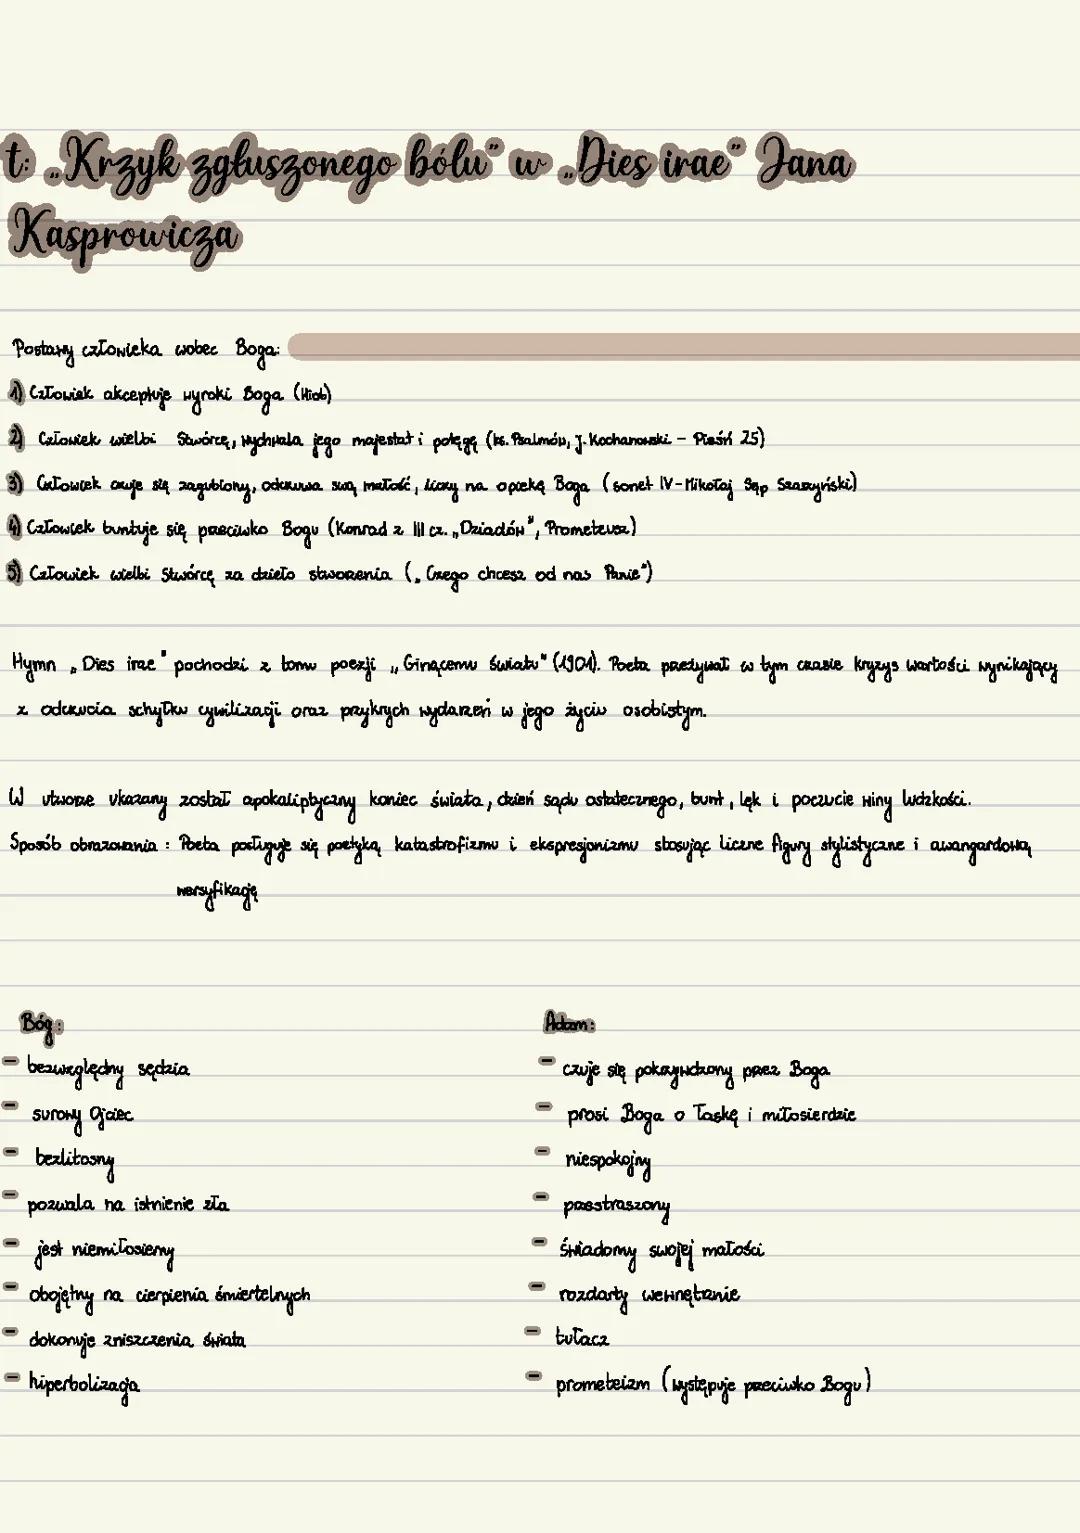 t: „Krzyk zgłuszonego bólu" w „Dies irae" Jana
Kasprowicza
Postawy człowieka wobec Boga:
1) Człowiek akceptuje wyroki Boga (Hiob)
2) Człowiek wielbi Stwórcę, wychwala jego majestat i potęgę (ks. Psalmów, J. Kochanowski - Pieśń 25)
3) Człowiek czuje się zagubiony, odczuwa swą małość, liczy na opiekę Boga (sonet IV - Mikołaj Sęp Szarzyński)
4) Człowiek buntuje się przeciwko Bogu (Konrad z III cz. „Dziadów", Prometeusz)
5) Człowiek wielbi Stwórcę za dzieło stworzenia („Czego chcesz od nas Panie")
Hymn „Dies irae" pochodzi z tomu poezji „Ginącemu światu" (1901). Poeta przeżywał w tym czasie kryzys wartości wynikający
z odczucia schyłku cywilizacji oraz przykrych wydarzeń w jego życiu osobistym.
W utworze ukazany został apokaliptyczny koniec świata, dzień sądu ostatecznego, bunt, lęk i poczucie winy ludzkości.
Sposób obrazowania: Poeta posługuje się poetyką katastrofizmu i ekspresjonizmu stosując liczne figury stylistyczne i awangardową
wersyfikację
Bóg:
- bezwzględny sędzia
- surowy Ojciec
- bezlitosny
- pozwala na istnienie zła
- jest niemiłosierny
- obojętny na cierpienia śmiertelnych
- dokonuje zniszczenia świata
- hiperbolizacja
Adam:
- czuje się pokrzywdzony przez Boga
- prosi Boga o łaskę i miłosierdzie
- niespokojny
- przestraszony
- świadomy swojej małości
- rozdarty wewnętrznie
- tułacz
- prometeizm (występuje przeciwko Bogu)